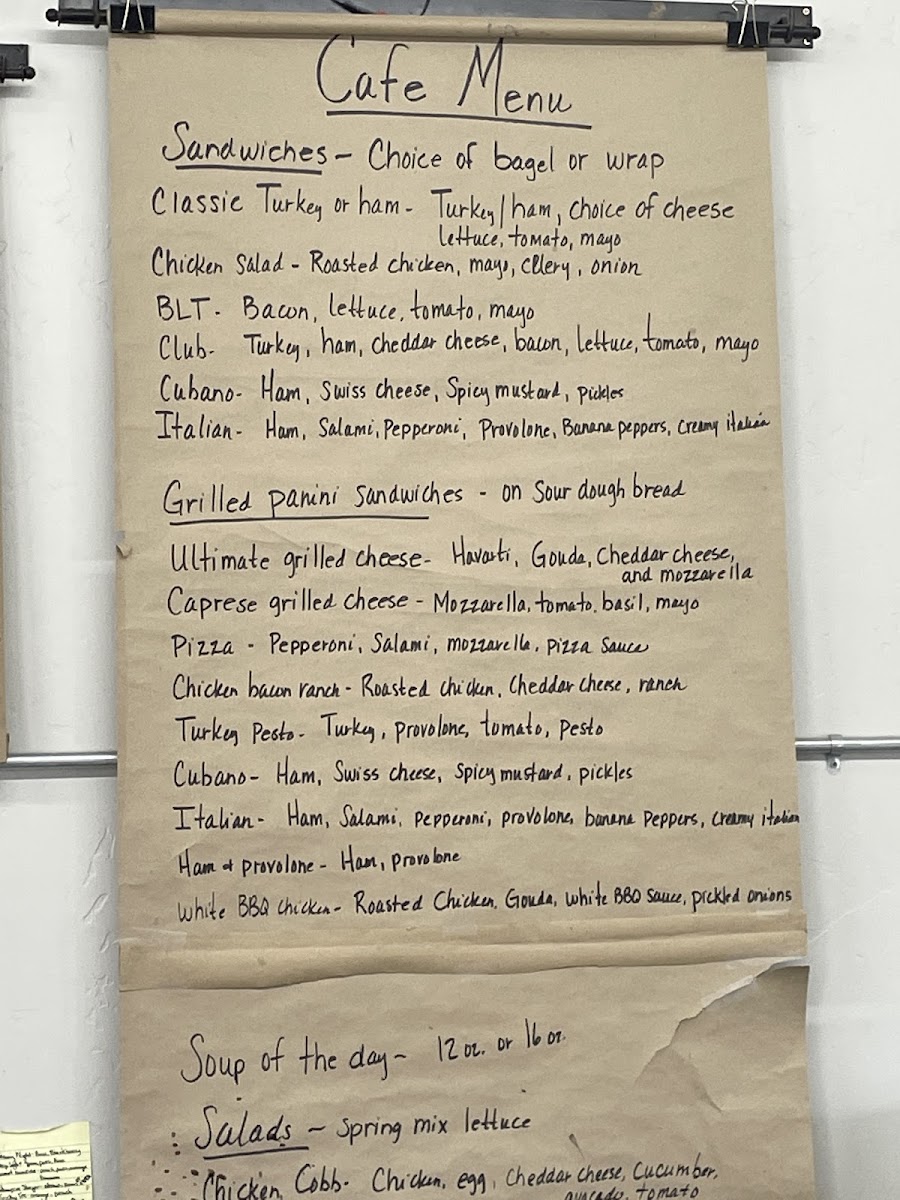 Cafe Menu
Sandwiches - Choice of bagel or wrap
Classic Turkey or ham - Turkey/ham, choice of cheese
lettuce, tomato, mayo
Chicken Salad - Roasted chicken, mayo, cllery, onion
BLT - Bacon, lettuce, tomato, mayo
Club - Turkey, ham, cheddar cheese, bacon, lettuce, tomato, mayo
Cubano - Ham, Swiss cheese, Spicy mustard, pickles
Italian - Ham, Salami, Pepperoni, Provolone, Banana peppers, creamy italian
Grilled panini sandwiches - on Sour dough bread
Ultimate grilled cheese - Havarti, Gouda, Cheddar cheese,
and mozzarella
Caprese grilled cheese - Mozzarella, tomato, basil, mayo
Pizza - Pepperoni, Salami, mozzarella, pizza sauce
Chicken bacon ranch - Roasted chicken, Cheddar cheese, ranch
Turkey Pesto - Turkey, provolone, tomato, pesto
Cubano - Ham, Swiss cheese, Spicy mustard, pickles
Italian - Ham, Salami, pepperoni, provolone, banana peppers, creamy italian
Ham + provolone - Ham, provolone
White BBQ chicken - Roasted Chicken, Gouda, white BBQ sauce, pickled onions
Soup of the day ~ 12 oz. or 16 oz.
Salads ~ Spring mix lettuce
Chicken Cobb - Chicken, egg, cheddar cheese, cucumber,
avocado, tomato